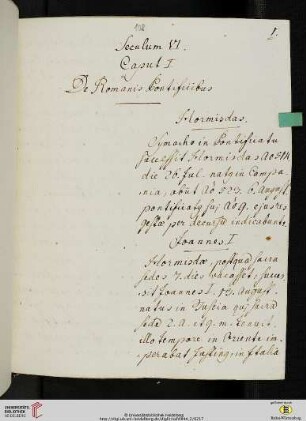 1.
Seculum VI.
Caput I
De Romanis Pontificibus
Hormisdas.
Symacho in Pontificatu
successit Hormisdas Ao 514
die 26. Jul. natus in Campa
nia, obiit Ao 523. 6. August
pontificatus sui Ao 9. ejus res
gestæ per decursu indicabunt.
Joannes I
Hormisdæ, postquã sacra
sedes 7. dies vacasset, succes
sit Joannes I. 13. August.
natus in Tuscia qui sacrã
sedẽ 2. A. et 9. m. tenuit.
Illo tempore in Oriente im
perabat Justing, in Italia
© Universitätsbibliothek Heidelberg